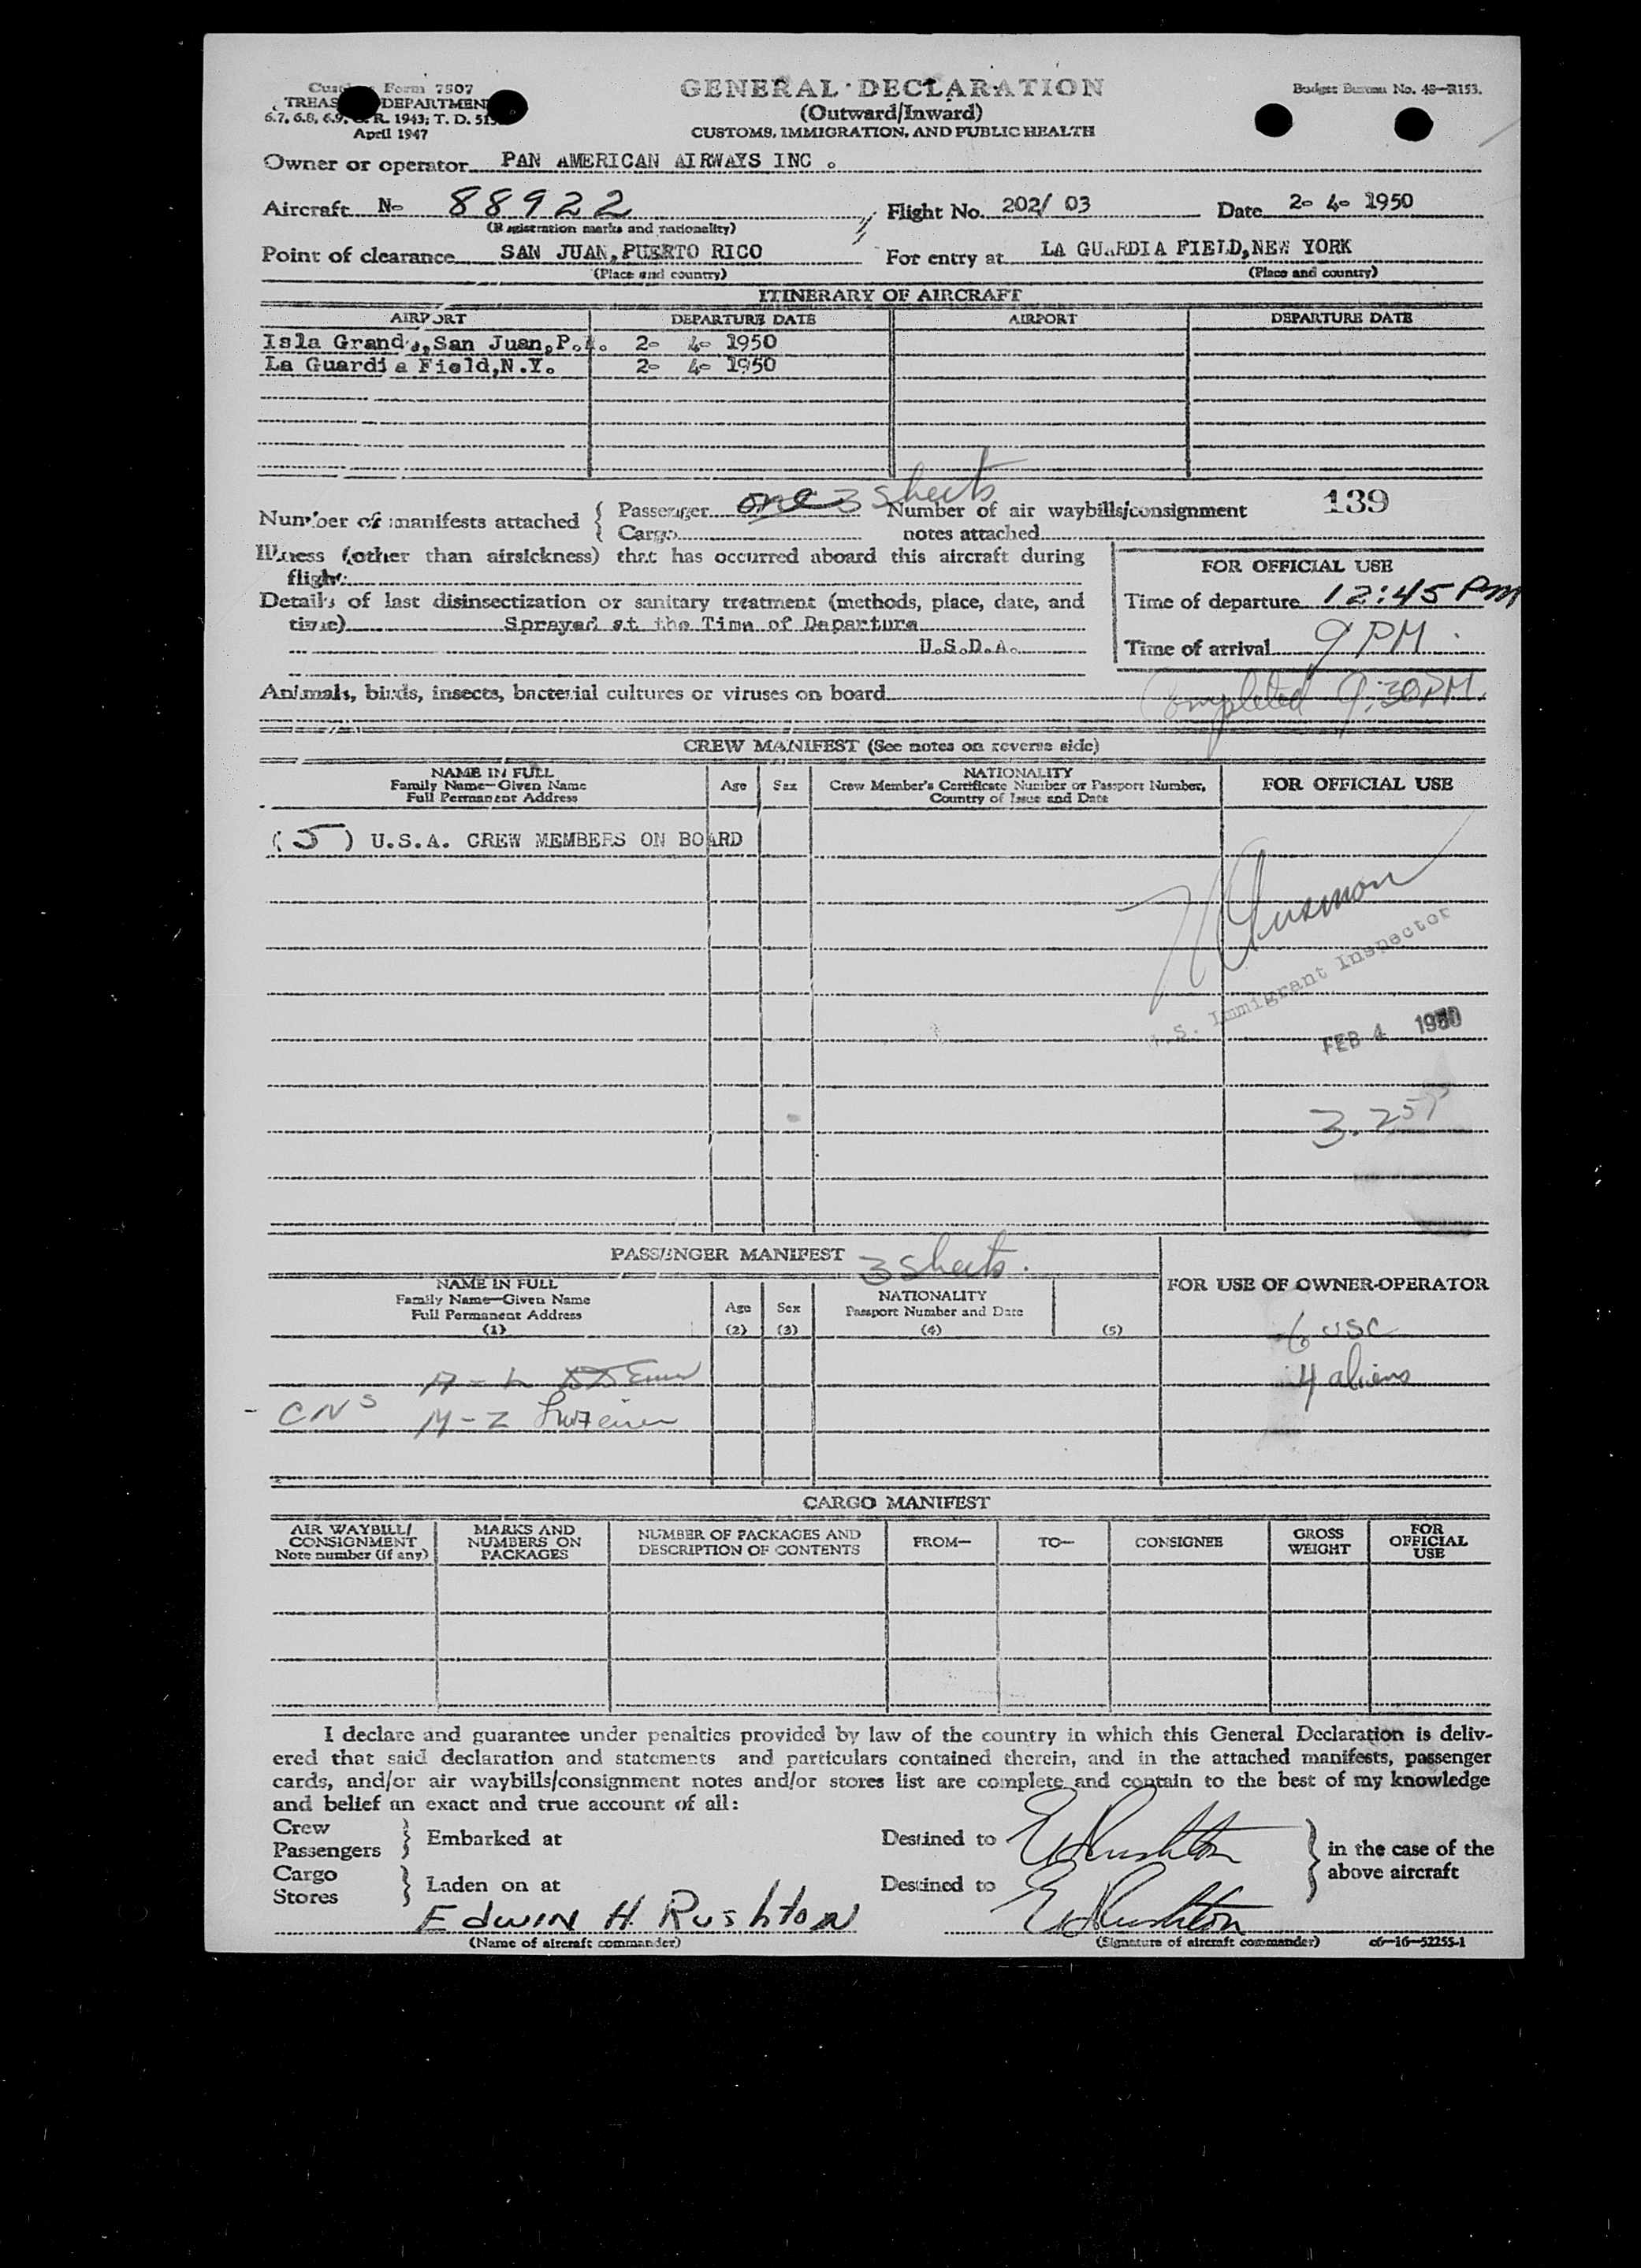 Customs Form 7507
TREASURY DEPARTMENT
6.7, 6.8, 6.9, C. R. 1943; T. D. 515
April 1947
GENERAL DECLARATION
(Outward/Inward)
CUSTOMS, IMMIGRATION, AND PUBLIC HEALTH
Budget Bureau No. 48—R153.
Owner or operator PAN AMERICAN AIRWAYS INC.
Aircraft N- 88922 Flight No. 202/ 03 Date 2- 4- 1950
(Registration marks and nationality)
Point of clearance SAN JUAN, PUERTO RICO For entry at LA GUARDIA FIELD, NEW YORK
(Place and country) (Place and country)
ITINERARY OF AIRCRAFT
AIRPORT DEPARTURE DATE AIRPORT DEPARTURE DATE
Isla Grande, San Juan, P.R. 2- 4- 1950
La Guardia Field, N.Y. 2- 4- 1950
Number of manifests attached { Passenger one 3 sheets Number of air waybills/consignment 139
Cargo notes attached
Illness (other than airsickness) that has occurred aboard this aircraft during
flight:
FOR OFFICIAL USE
Details of last disinsectization or sanitary treatment (methods, place, date, and
time) Sprayed at the Time of Departure
U.S.D.A.
Time of departure 12:45 PM
Time of arrival 9 PM
Animals, birds, insects, bacterial cultures or viruses on board Completed 9:30 PM.
CREW MANIFEST (See notes on reverse side)
NAME IN FULL
Family Name—Given Name
Full Permanent Address
Age Sex
NATIONALITY
Crew Member's Certificate Number or Passport Number,
Country of Issue and Date
FOR OFFICIAL USE
(5) U.S.A. CREW MEMBERS ON BOARD
U.S. Immigrant Inspector
FEB 4 1950
3.25
PASSENGER MANIFEST 3 sheets.
NAME IN FULL
Family Name—Given Name
Full Permanent Address
(1)
Age
(2)
Sex
(3)
NATIONALITY
Passport Number and Date
(4)
(5)
FOR USE OF OWNER-OPERATOR
6 USC
4 aliens
A - L
CNS M - Z
CARGO MANIFEST
AIR WAYBILL/
CONSIGNMENT
Note number (if any)
MARKS AND
NUMBERS ON
PACKAGES
NUMBER OF PACKAGES AND
DESCRIPTION OF CONTENTS
FROM—
TO—
CONSIGNEE
GROSS
WEIGHT
FOR
OFFICIAL
USE
I declare and guarantee under penalties provided by law of the country in which this General Declaration is deliv-
ered that said declaration and statements and particulars contained therein, and in the attached manifests, passenger
cards, and/or air waybills/consignment notes and/or stores list are complete and contain to the best of my knowledge
and belief an exact and true account of all:
Crew
Passengers } Embarked at Destined to EHRushton } in the case of the
Cargo above aircraft
Stores } Laden on at Destined to
Edwin H. Rushton EHRushton
(Name of aircraft commander) (Signature of aircraft commander) c6—16—52255-1